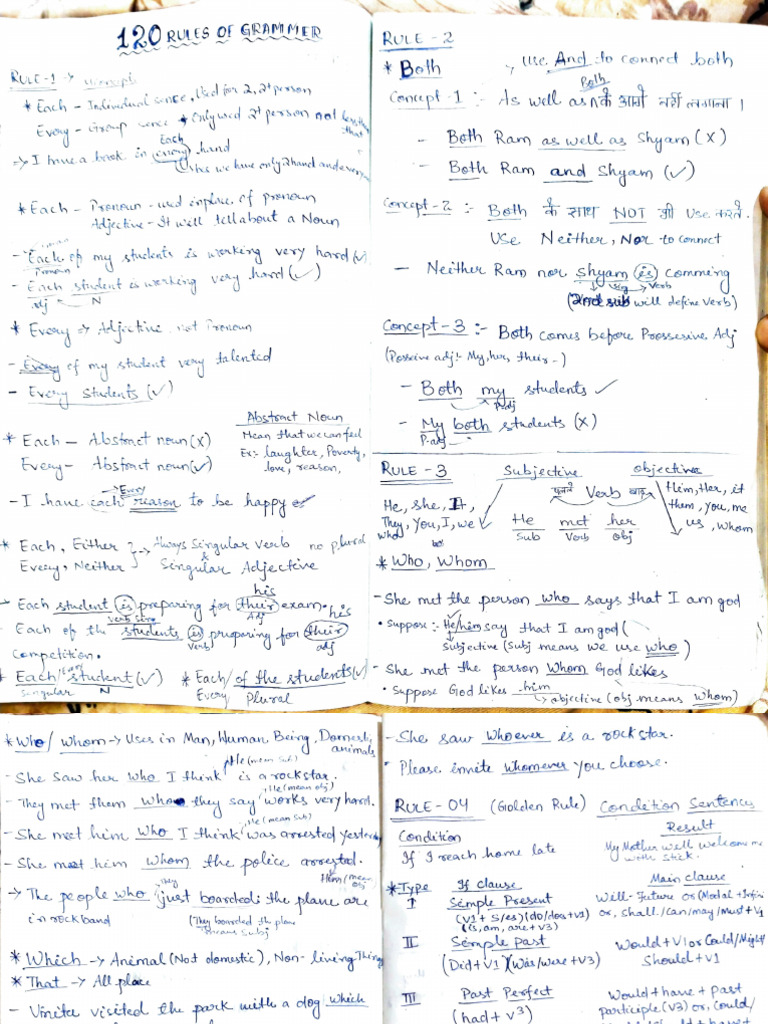 120 RULES OF GRAMMER
RULE-1 →
* Each - Individual sence, Used for 2, 2+ person
Every - Group sence * Only used 2+ person not less than that
→ I have a book in every hand
Each
Has we have only 2 hand and
* Each - Pronoun - used in place of pronoun
Adjective - It will tell about a Noun
- Each of my students is working very hard (✓)
Pronoun
- Each student is working very hard (✓)
adj N
* Every ⇒ Adjective not Pronoun
- Every of my student very talented
- Every students (✓)
* Each - Abstract noun (X)
Every - Abstract noun (✓)
Abstract Noun
Mean that we can feel
Ex:- laughter, Poverty,
love, reason,
Every
- I have each reason to be happy
* Each, Either
Every, Neither
→ Always Singular verb
&
Singular Adjective
no plural
his
- Each student is preparing for their exam.
verb Sing adj
his
- Each of the students is pruparing for their
verb adj
competition.
* Each/Every student (✓)
Singular N
* Each/ of the students (✓)
Every Plural
RULE - 2
* Both → Use And to connect both
Both
Concept-1 :- As well as के आगे नहीं लगाना ।
- Both Ram as well as Shyam (X)
- Both Ram and Shyam (✓)
Concept-2 :- Both के साथ NOT भी Use करते.
USE Neither, Nor to connect
- Neither Ram nor Shyam is comming
Sig Verb
(2nd sub will define verb)
Concept-3 :- Both comes before Prossesive Adj
(Possive adj:- My, her, their --)
- Both my students ✓
P.adj
- My both students (X)
P.adj
RULE - 3
Subjective objective
Verb
He, she, It,
They, You, I, we
Who
Him, Her, it
them, you, me
us, whom
He met her
Sub Verb obj
* Who, Whom
- She met the person who says that I am god
• Suppose :- He/him say that I am god (
Subjective (Subj means we use who)
- She met the person Whom God likes
• Suppose God likes him
→ objective (obj means whom)
* Who/ whom → Uses in Man, Human Being, Domestic
animals
He (mean Sub)
- She saw her who I think is a rockstar.
He (mean obj)
- They met them who they say works very hard.
He (mean sub)
- She meet him who I think was arrested yesterday
- She meet him whom the police arrested.
Him/ mean
obj
They
→ The people who just boarded the plane are
in rock band
(They boarded the plane
means Subj
* Which → Animal (Not domestic), Non-living Thing
* That → All place
- Vinite visited the park with a dog which
- She saw whoever is a rockstar.
• Please invite whomever you choose.
RULE-04 (Golden Rule) Condition Sentences
Condition
If I reach home late
Result
My Mother well welcome me
with stick.
* Type If clause Main clause
I Semple Present
(V1 + S/es)(do/does+v1)
(is, am, are + v3)
Will - Future or (Modal + Infini
or, Shall/can/may/Must + V1
II Semple Past
(Did+V1)(Was/were+V3)
Would + V1 or Could/Might/
Should + V1
III Past Perfect
(had + V3)
Would + have + past
participle (V3) or, Could/